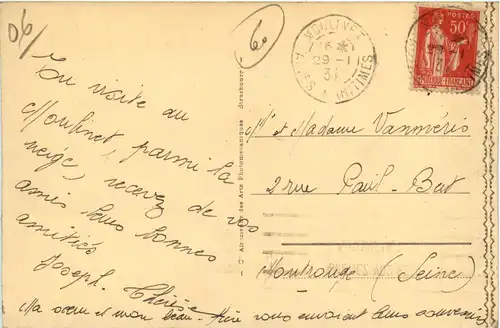 06/
60
MOULINET
16 *
29-11
ALPES MARITIMES
POSTES
50c
REPUBLIQUE FRANÇAISE
En visite au
Moulinet, parmi la
neige, recevez de vos
amis leurs bonnes
amitiés
Joseph. Thérèse
Ma sœur et mon beau-frère vous envoient leurs souvenirs
Cie Alsacienne des Arts Photomécaniques Strasbourg
Mr et Madame Vanméris
2 rue Paul-Bert
Montrouge (Seine)